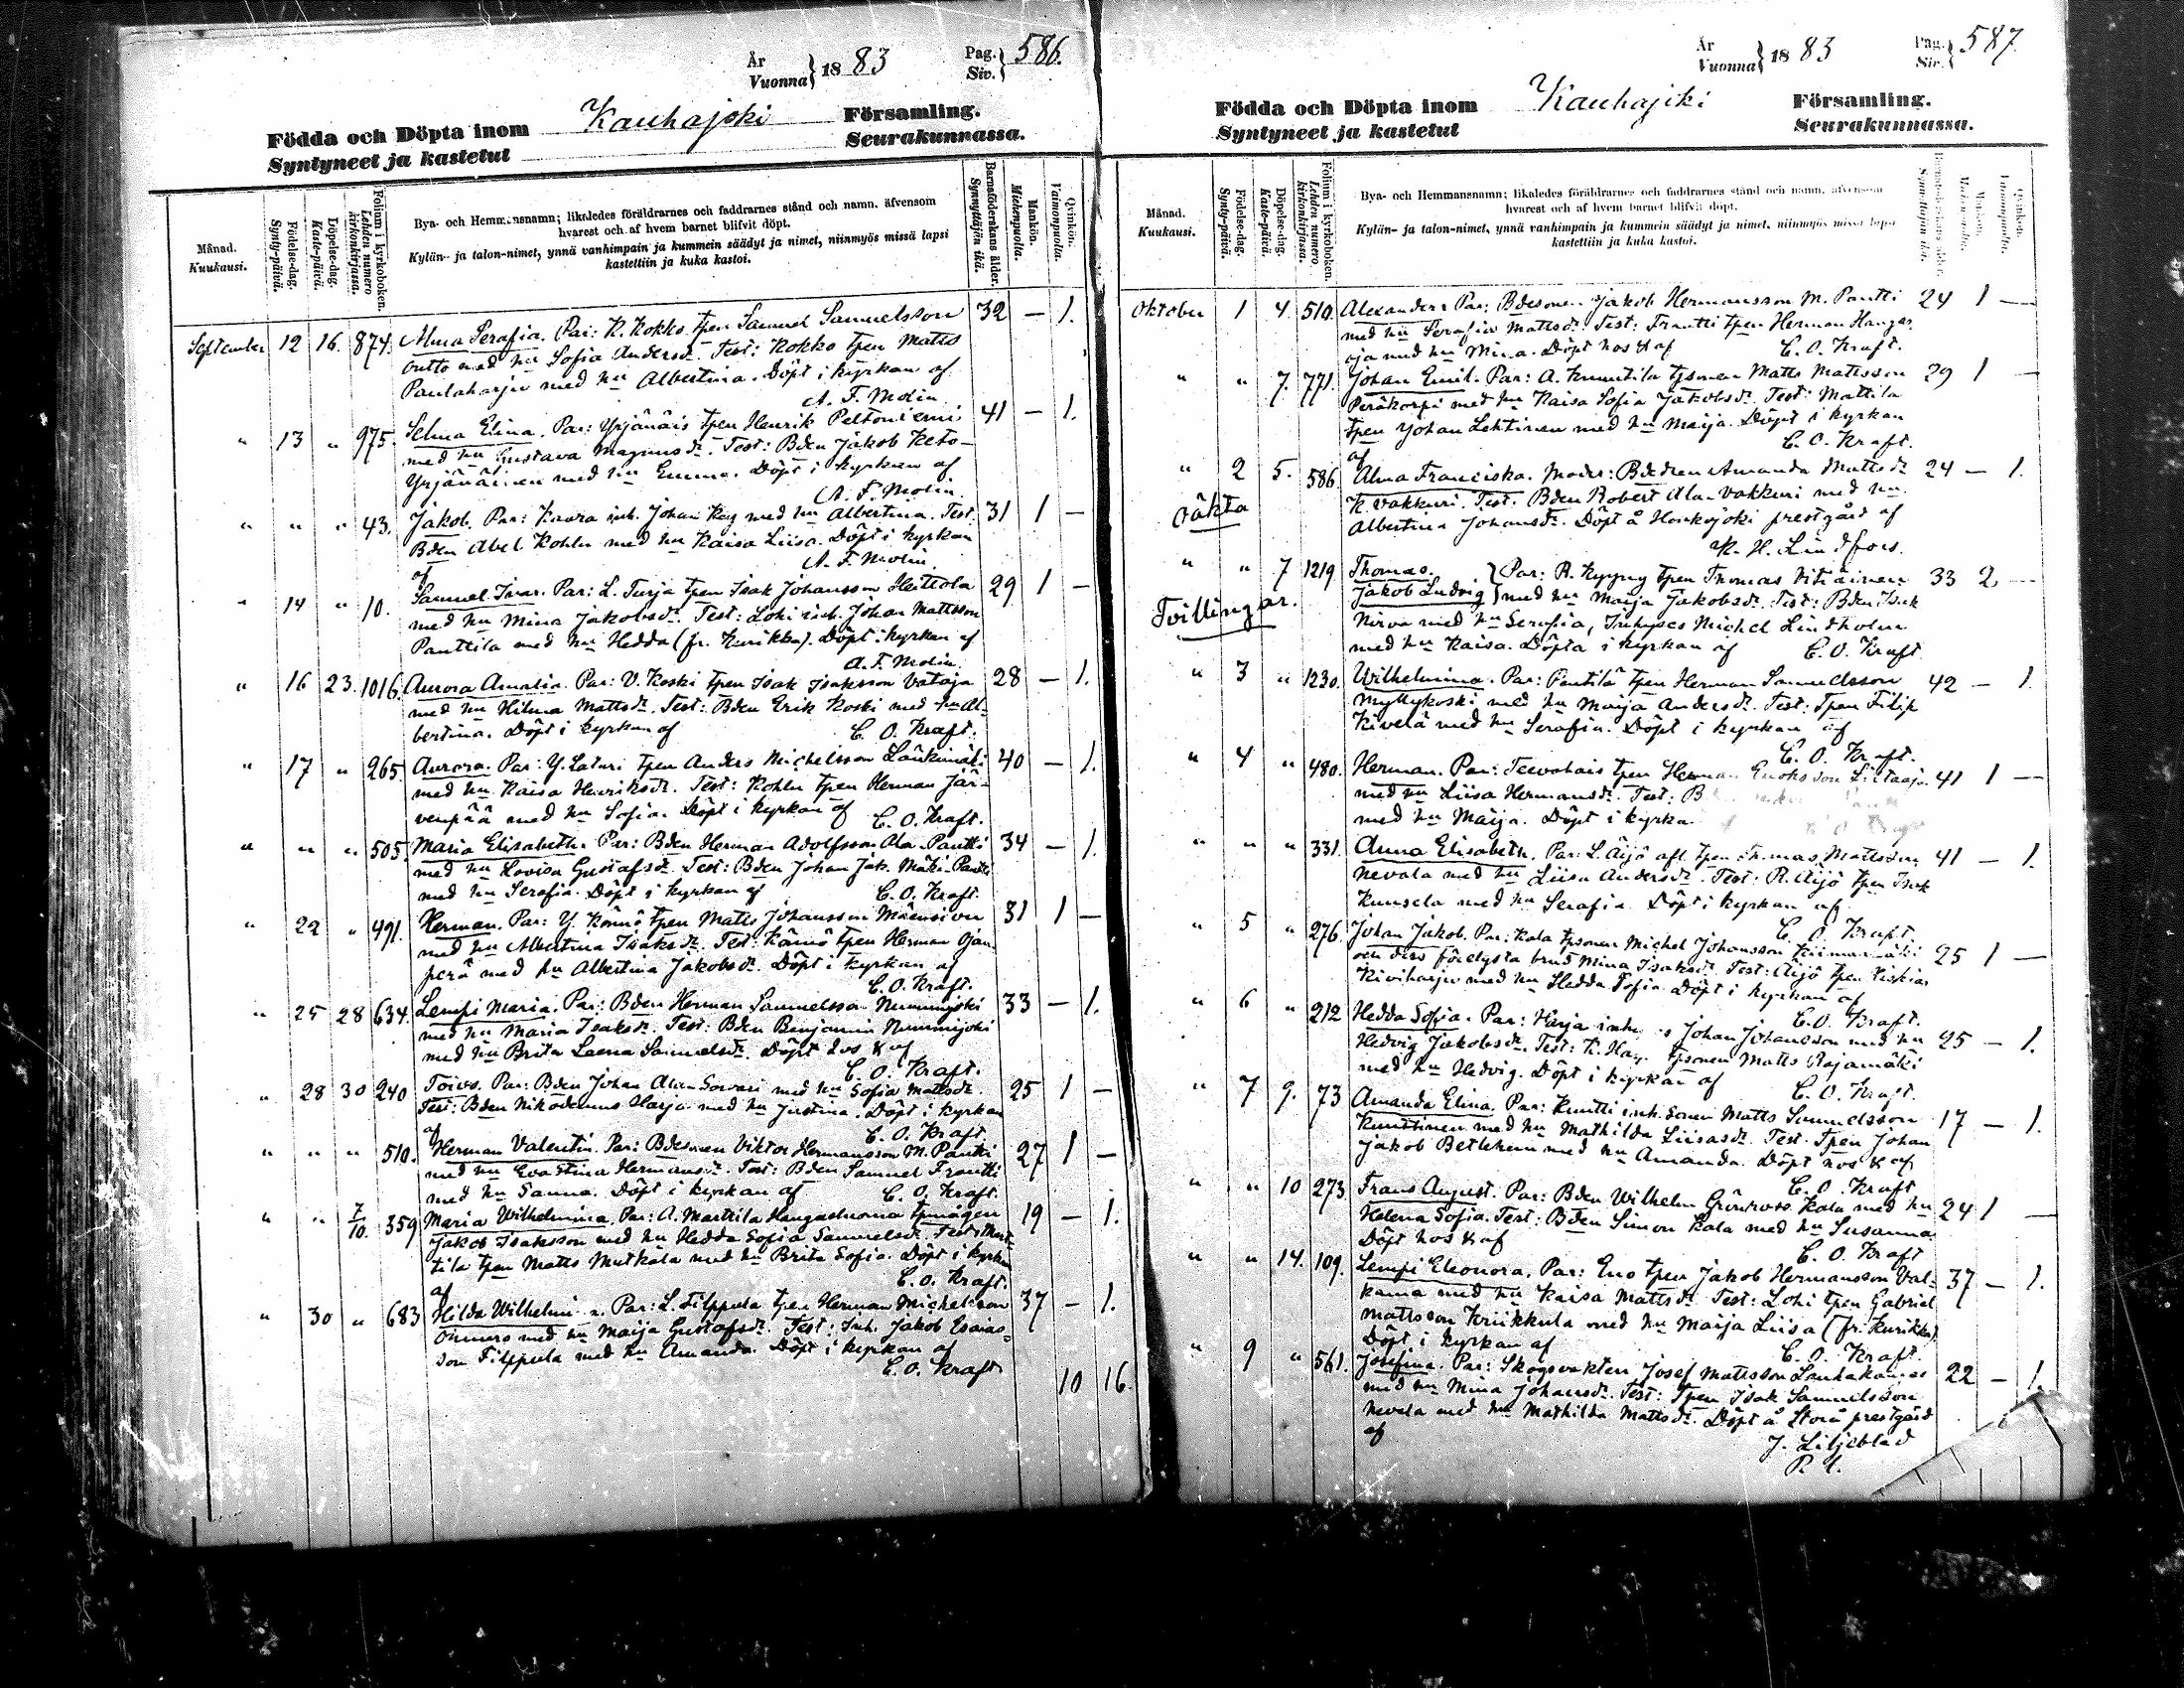 År
Vuonna } 1883
Pag.
Siv. } 586.
Födda och Döpta inom Kauhajoki Församling.
Syntyneet ja kastetut Seurakunnassa.
Månad.
Kuukausi.
Födelse-dag.
Synty-päivä.
Döpelse-dag.
Kaste-päivä.
Folium i kyrkoboken.
Lehden numero kirkonkirjassa.
Bya- och Hemmansnamn; likaledes föräldrarnes och faddrarnes stånd och namn, äfvensom
hvarest och af hvem barnet blifvit döpt.
Kylän- ja talon-nimet, ynnä vanhimpain ja kummein säädyt ja nimet, niinmyös missä lapsi
kastettiin ja kuka kastoi.
Barnaföderskans ålder.
Synnyttäjän ikä.
Mankön.
Miehenpuolia.
Qvinkön.
Vaimonpuolia.
September 12 16. 874. Alma Serafia. Par: K. Kokko tpen Samuel Samuelsson 32 — 1.
outto med hu Sofia Andersdr. Test: Kokko tpen Matts
Pantaharju med hu Albertina. Döpt i kyrkan af
A. F. Molin.
" 13 " 975. Selma Elina. Par: Yrjänäis tpen Henrik Peltoniemi 41 — 1.
med hu Gustava Magnusdr. Test: Bden Jakob Keto-
Yrjänäinen med hu Emma. Döpt i kyrkan af
A. F. Molin.
" " " 43. Jakob. Par: Kaura inh. Johan Kay med hu Albertina. Test: 31 1 —
Bden Abel Kohlu med hu Kaisa Liisa. Döpt i kyrkan
af A. F. Molin.
" 14 " 10. Samuel Ivar. Par: L. Turja tpen Isak Johansson Hietiola 29 1 —
med hu Mina Jakobsdr. Test: Lohi inh. Johan Mattsson
Panttila med hu Hedda (fr. Kurikka). Döpt i kyrkan af
A. F. Molin.
" 16 23. 1016. Aurora Amalia. Par: V. Koski tpen Isak Isaksson Vataja 28 — 1.
med hu Hilma Mattsdr. Test: Bden Erik Koski med hu Al-
bertina. Döpt i kyrkan af C. O. Kraft.
" 17 " 265 Aurora. Par: Y. Laturi tpen Anders Michelsson Länkimäki 40 — 1.
med hu Kaisa Henriksdr. Test: Kohlu tpen Herman Jär-
venpää med hu Sofia. Döpt i kyrkan af C. O. Kraft.
" " " 505. Maria Elisabeth. Par: Bden Herman Adolfsson Ala-Pantti 34 — 1.
med hu Lovisa Gustafsdr. Test: Bden Johan Jak. Mäki-Pantti
med hu Serafia. Döpt i kyrkan af C. O. Kraft.
" 22 " 491. Herman. Par: Y. Könnö tpen Matts Johansson Mäensivu 31 1 —
med hu Albertina Isaksdr. Test: Könnö tpen Herman Ojan-
perä med hu Albertina Jakobsdr. Döpt i kyrkan af
C. O. Kraft.
" 25 28 634. Lempi Maria. Par: Bden Herman Samuelsson Nummijoki 33 — 1.
med hu Maria Isaksdr. Test: Bden Benjamin Nummijoki
med hu Brita Leena Samuelsdr. Döpt hos & af
C. O. Kraft.
" 28 30 240 Toivo. Par: Bden Johan Ala-Sorvari med hu Sofia Mattsdr. 25 1 —
Test: Bden Nikodemus Harja med hu Justina. Döpt i kyrkan
af C. O. Kraft.
" " " 510. Herman Valentin. Par: Bdesonen Viktor Hermansson M. Pantti 27 1 —
med hu Eva Stina Hermansdr. Test: Bden Samuel Frantti
med hu Sanna. Döpt i kyrkan af C. O. Kraft.
" " 7/10. 359 Maria Wilhelmina. Par: A. Marttila Hangasluoma tpmågen 19 — 1.
Jakob Isaksson med hu Hedda Sofia Samuelsdr. Test: Mart-
tila tpen Matts Mutkala med hu Brita Sofia. Döpt i kyrkan
af C. O. Kraft.
" 30 " 683 Hilda Wilhelmina. Par: L. Filppula tpen Herman Michelsson 37 — 1.
Ounnas med hu Maija Gustafsdr. Test: Inh. Jakob Esaias-
son Filppula med hu Amanda. Döpt i kyrkan af
C. O. Kraft.
10 16.
År
Vuonna } 1883
Pag.
Siv. } 587.
Födda och Döpta inom Kauhajoki Församling.
Syntyneet ja kastetut Seurakunnassa.
Månad.
Kuukausi.
Födelse-dag.
Synty-päivä.
Döpelse-dag.
Kaste-päivä.
Folium i kyrkoboken.
Lehden numero kirkonkirjassa.
Bya- och Hemmansnamn; likaledes föräldrarnes och faddrarnes stånd och namn, äfvensom
hvarest och af hvem barnet blifvit döpt.
Kylän- ja talon-nimet, ynnä vanhimpain ja kummein säädyt ja nimet, niinmyös missä lapsi
kastettiin ja kuka kastoi.
Oktober 1 4. 510. Alexander. Par: Bdesonen Jakob Hermansson M. Pantti 24 1 —
med hu Serafia Mattsdr. Test: Frantti tpen Herman Hangas-
oja med hu Mina. Döpt hos & af C. O. Kraft.
" " 7. 771. Johan Emil. Par: A. Knuuttila tpsonen Matts Mattsson 29 1 —
Peräkorpi med hu Kaisa Sofia Jakobsdr. Test: Mattila
tpen Johan Lehtinen med hu Maija. Döpt i kyrkan
af C. O. Kraft.
" 2 5. 586. Alma Franciska. Moder: Bdedren Amanda Mattsdr 24 — 1.
Oäkta K. Vakkuri. Test: Bden Robert Ala-Vakkuri med hu
Albertina Johansdr. Döpt å Honkajoki prestgård af
K. H. Lindfors.
" " 7 1219 Thomas. } Par: R. Kyyny tpen Thomas Vitiäinen 33 2 —
Tvillingar. Jakob Ludvig } med hu Maija Jakobsdr. Test: Bden Isak
Nirva med hu Serafia, Inhyses Michel Lindholm
med hu Kaisa. Döpta i kyrkan af C. O. Kraft
" 3 " 1230. Wilhelmina. Par: Pentilä tpen Herman Samuelsson 42 — 1.
Myllykoski med hu Maija Andersdr. Test: Tpen Filip
Kivelä med hu Serafia. Döpt i kyrkan af
C. O. Kraft.
" 4 " 480. Herman. Par: Teevahais tpen Herman Enoksson Lietaoja 41 1 —
med hu Liisa Hermansdr. Test: B
med hu Maija. Döpt i kyrka
" " " 331. Anna Elisabeth. Par: L. Äijö afl. tpen Thomas Mattsson 41 — 1.
Nevala med hu Liisa Andersdr. Test: R. Äijö tpen Isak
Kunsela med hu Serafia. Döpt i kyrkan af
C. O. Kraft.
" 5 " 276. Johan Jakob. Par: Kala tpsonen Michel Johansson Kiimamäki 25 1 —
och dess förelysta brud Mina Isaksdr. Test: Äijö tpen Kiskias
Kiviharju med hu Hedda Sofia. Döpt i kyrkan af
C. O. Kraft.
" 6 " 212 Hedda Sofia. Par: Harja inhyses Johan Johansson med hu 25 — 1.
Hedvig Jakobsdr. Test: K. Harja tpsonen Matts Rajamäki
med hu Hedvig. Döpt i kyrkan af C. O. Kraft.
" 7 9. 73 Amanda Elina. Par: Knutti inh. sonen Matts Samuelsson 17 — 1.
Knuttinen med hu Mathilda Liisasdr. Test: Tpen Johan
Jakob Betlehem med hu Amanda. Döpt hos & af
C. O. Kraft
" " 10 273. Frans August. Par: Bden Wilhelm Grönroos Kala med hu 24 1 —
Helena Sofia. Test: Bden Simon Kala med hu Susanna
Döpt hos & af C. O. Kraft
" " 14. 109. Lempi Eleonora. Par: Eno tpen Jakob Hermansson Val- 37 — 1.
kama med hu Kaisa Mattsdr. Test: Lohi tpen Gabriel
Mattsson Kriikkula med hu Maija Liisa (fr. Kurikka)
Döpt i kyrkan af C. O. Kraft.
" 9 " 561. Josefina. Par: Skogsvakten Josef Mattsson Lauhakangas 22 — 1.
med hu Mina Johansdr. Test: Tpen Isak Samuelsson
Nevala med hu Mathilda Mattsdr. Döpt å Storå prestgård
af J. Liljeblad